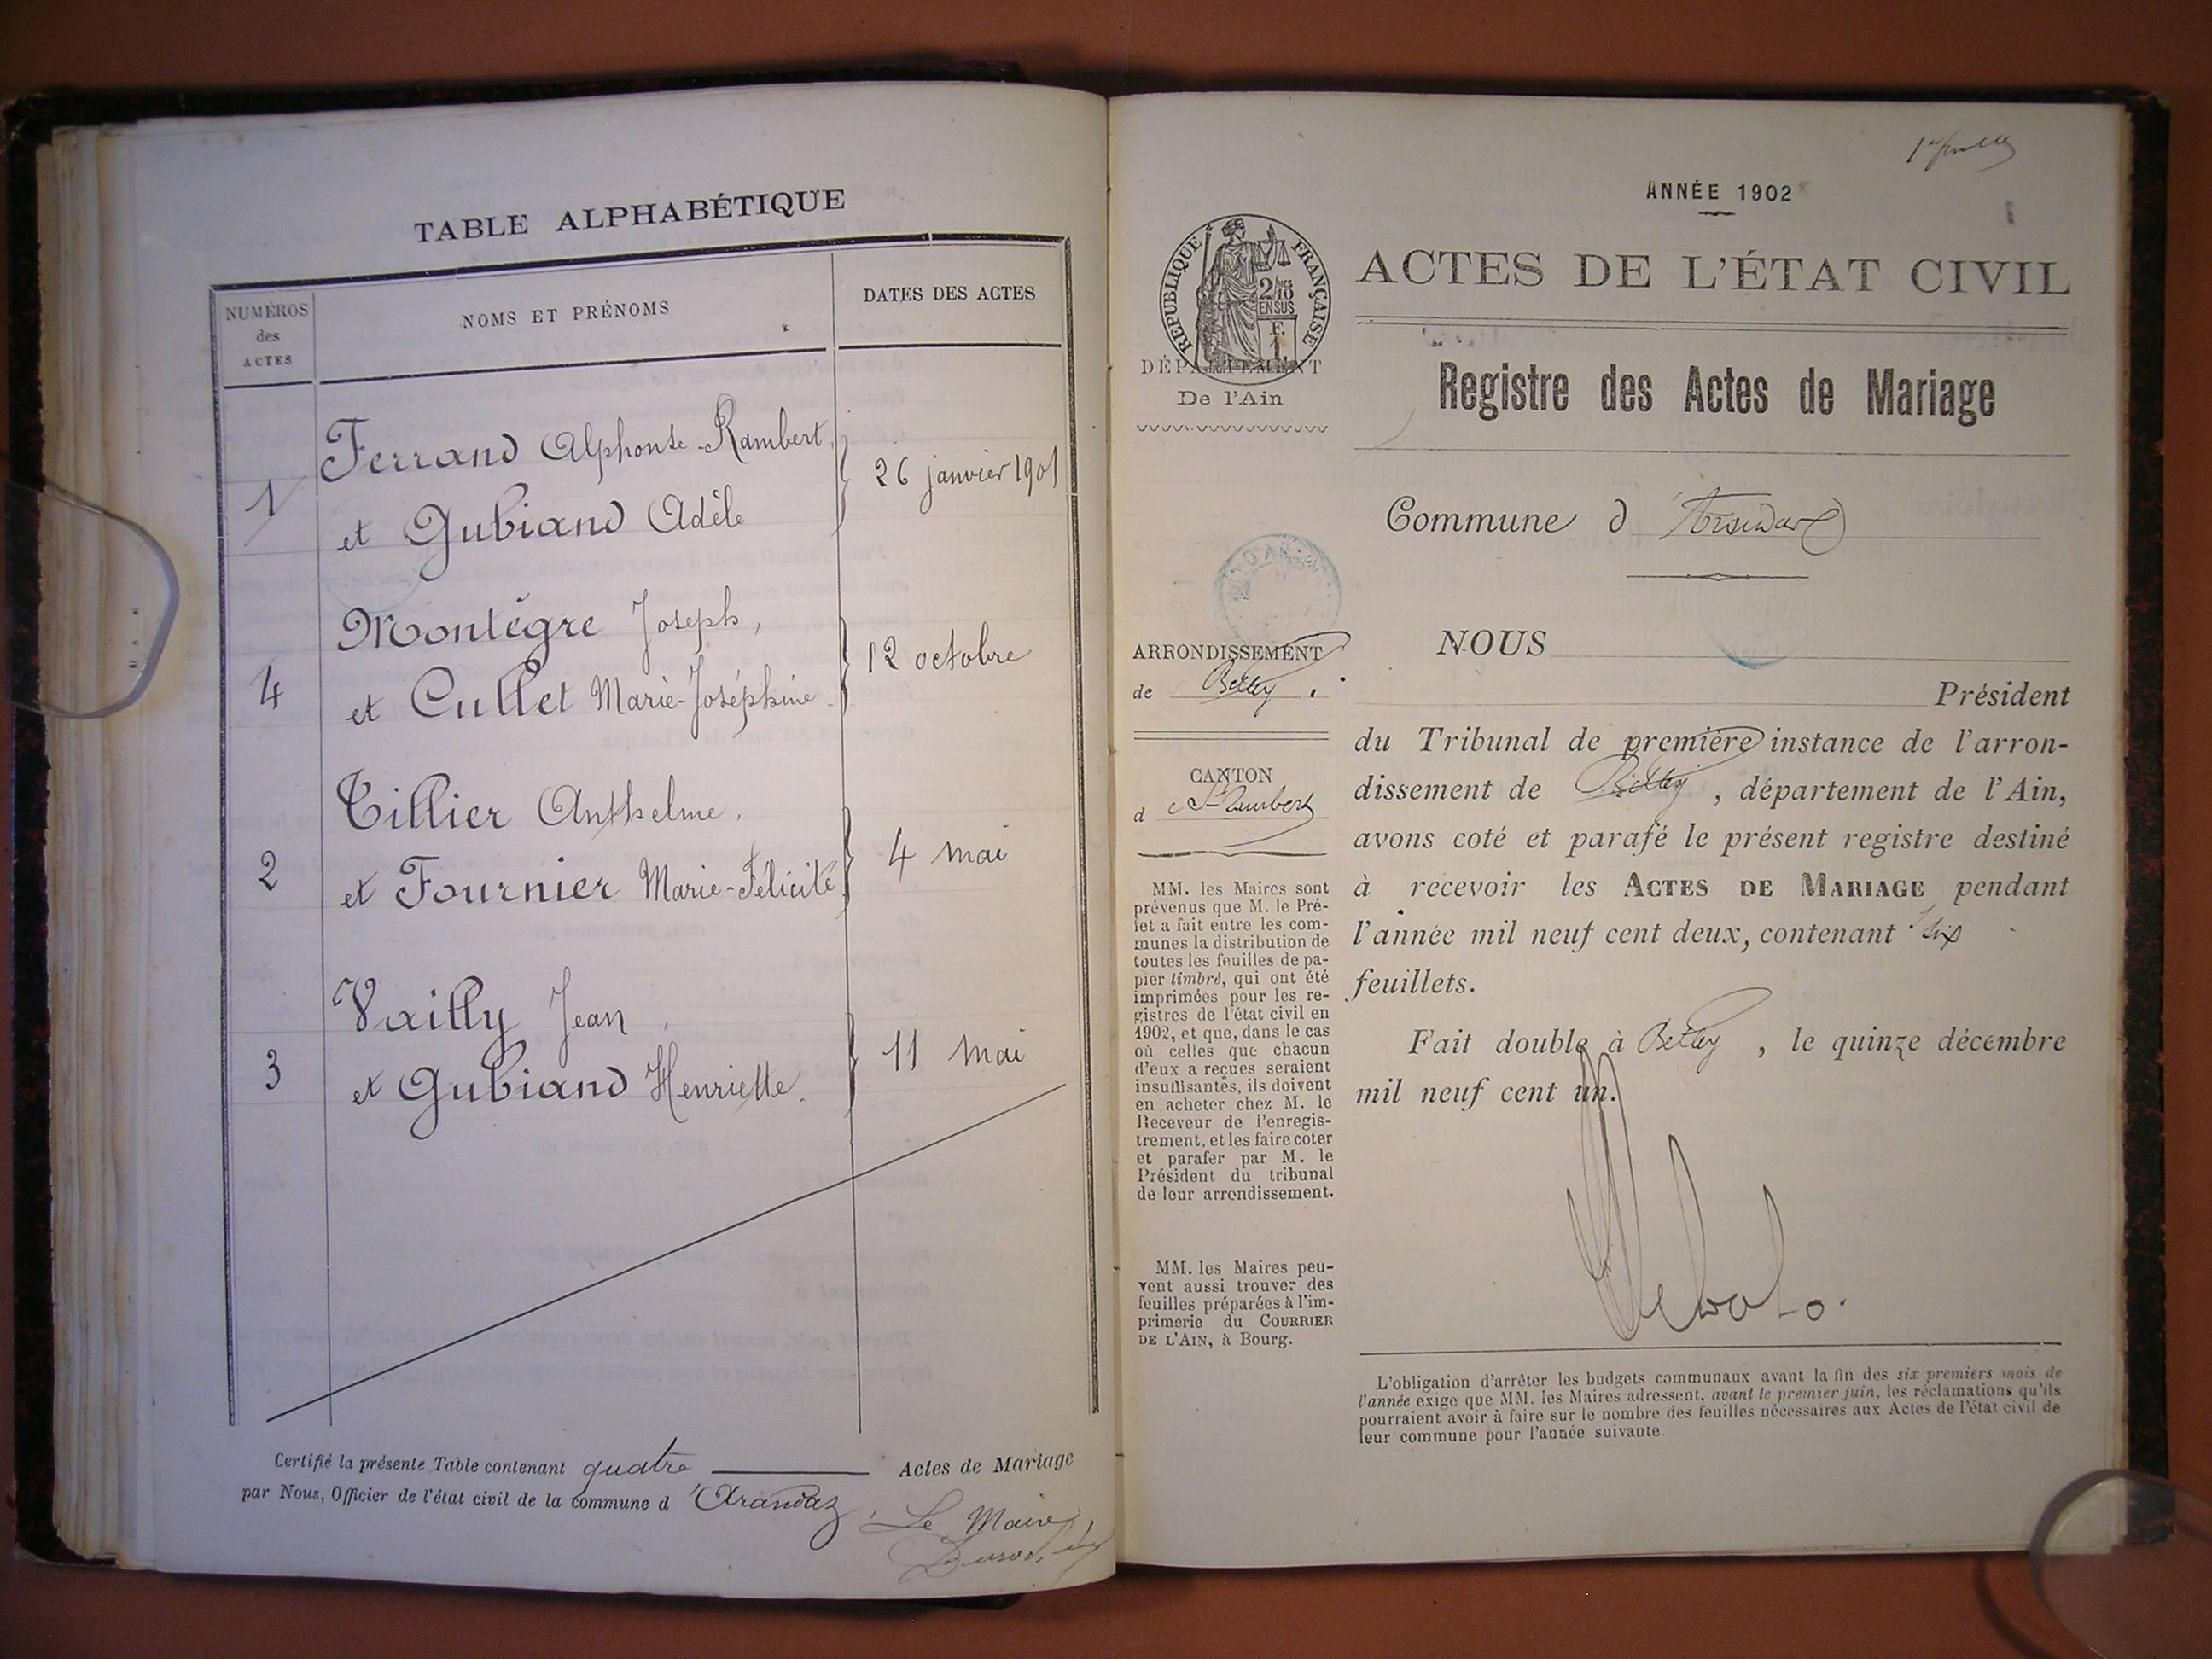 TABLE ALPHABÉTIQUE
NUMÉROS
des
ACTES
NOMS ET PRÉNOMS
DATES DES ACTES
1
Ferrand Alphonse-Rambert,
et Gubiand Adèle
26 janvier 1901
4
Montégre Joseph,
et Cullet Marie-Joséphine
12 octobre
2
Tillier Anthelme,
et Fournier Marie-Félicité
4 mai
3
Vailly Jean,
et Gubiand Henriette.
11 mai
Certifié la présente Table contenant quatre Actes de Mariage
par Nous, Officier de l'état civil de la commune d'Arandaz,
Le Maire
ANNÉE 1902
ACTES DE L'ÉTAT CIVIL
RÉPUBLIQUE FRANÇAISE
2/10
EN SUS
F.
1
DÉPARTEMENT
De l'Ain
Registre des Actes de Mariage
Commune d
ARRONDISSEMENT
de Belley
CANTON
d St Rambert
MM. les Maires sont
prévenus que M. le Pré-
fet a fait entre les com-
munes la distribution de
toutes les feuilles de pa-
pier timbré, qui ont été
imprimées pour les re-
gistres de l'état civil en
1902, et que, dans le cas
où celles que chacun
d'eux a reçues seraient
insuffisantes, ils doivent
en acheter chez M. le
Receveur de l'enregis-
trement, et les faire coter
et parafer par M. le
Président du tribunal
de leur arrondissement.
MM. les Maires peu-
vent aussi trouver des
feuilles préparées à l'im-
primerie du COURRIER
DE L'AIN, à Bourg.
NOUS
Président
du Tribunal de première instance de l'arron-
dissement de Belley, département de l'Ain,
avons coté et parafé le présent registre destiné
à recevoir les ACTES DE MARIAGE pendant
l'année mil neuf cent deux, contenant six
feuillets.
Fait double à Belley, le quinze décembre
mil neuf cent un.
L'obligation d'arrêter les budgets communaux avant la fin des six premiers mois de
l'année exige que MM. les Maires adressent, avant le premier juin, les réclamations qu'ils
pourraient avoir à faire sur le nombre des feuilles nécessaires aux Actes de l'état civil de
leur commune pour l'année suivante.